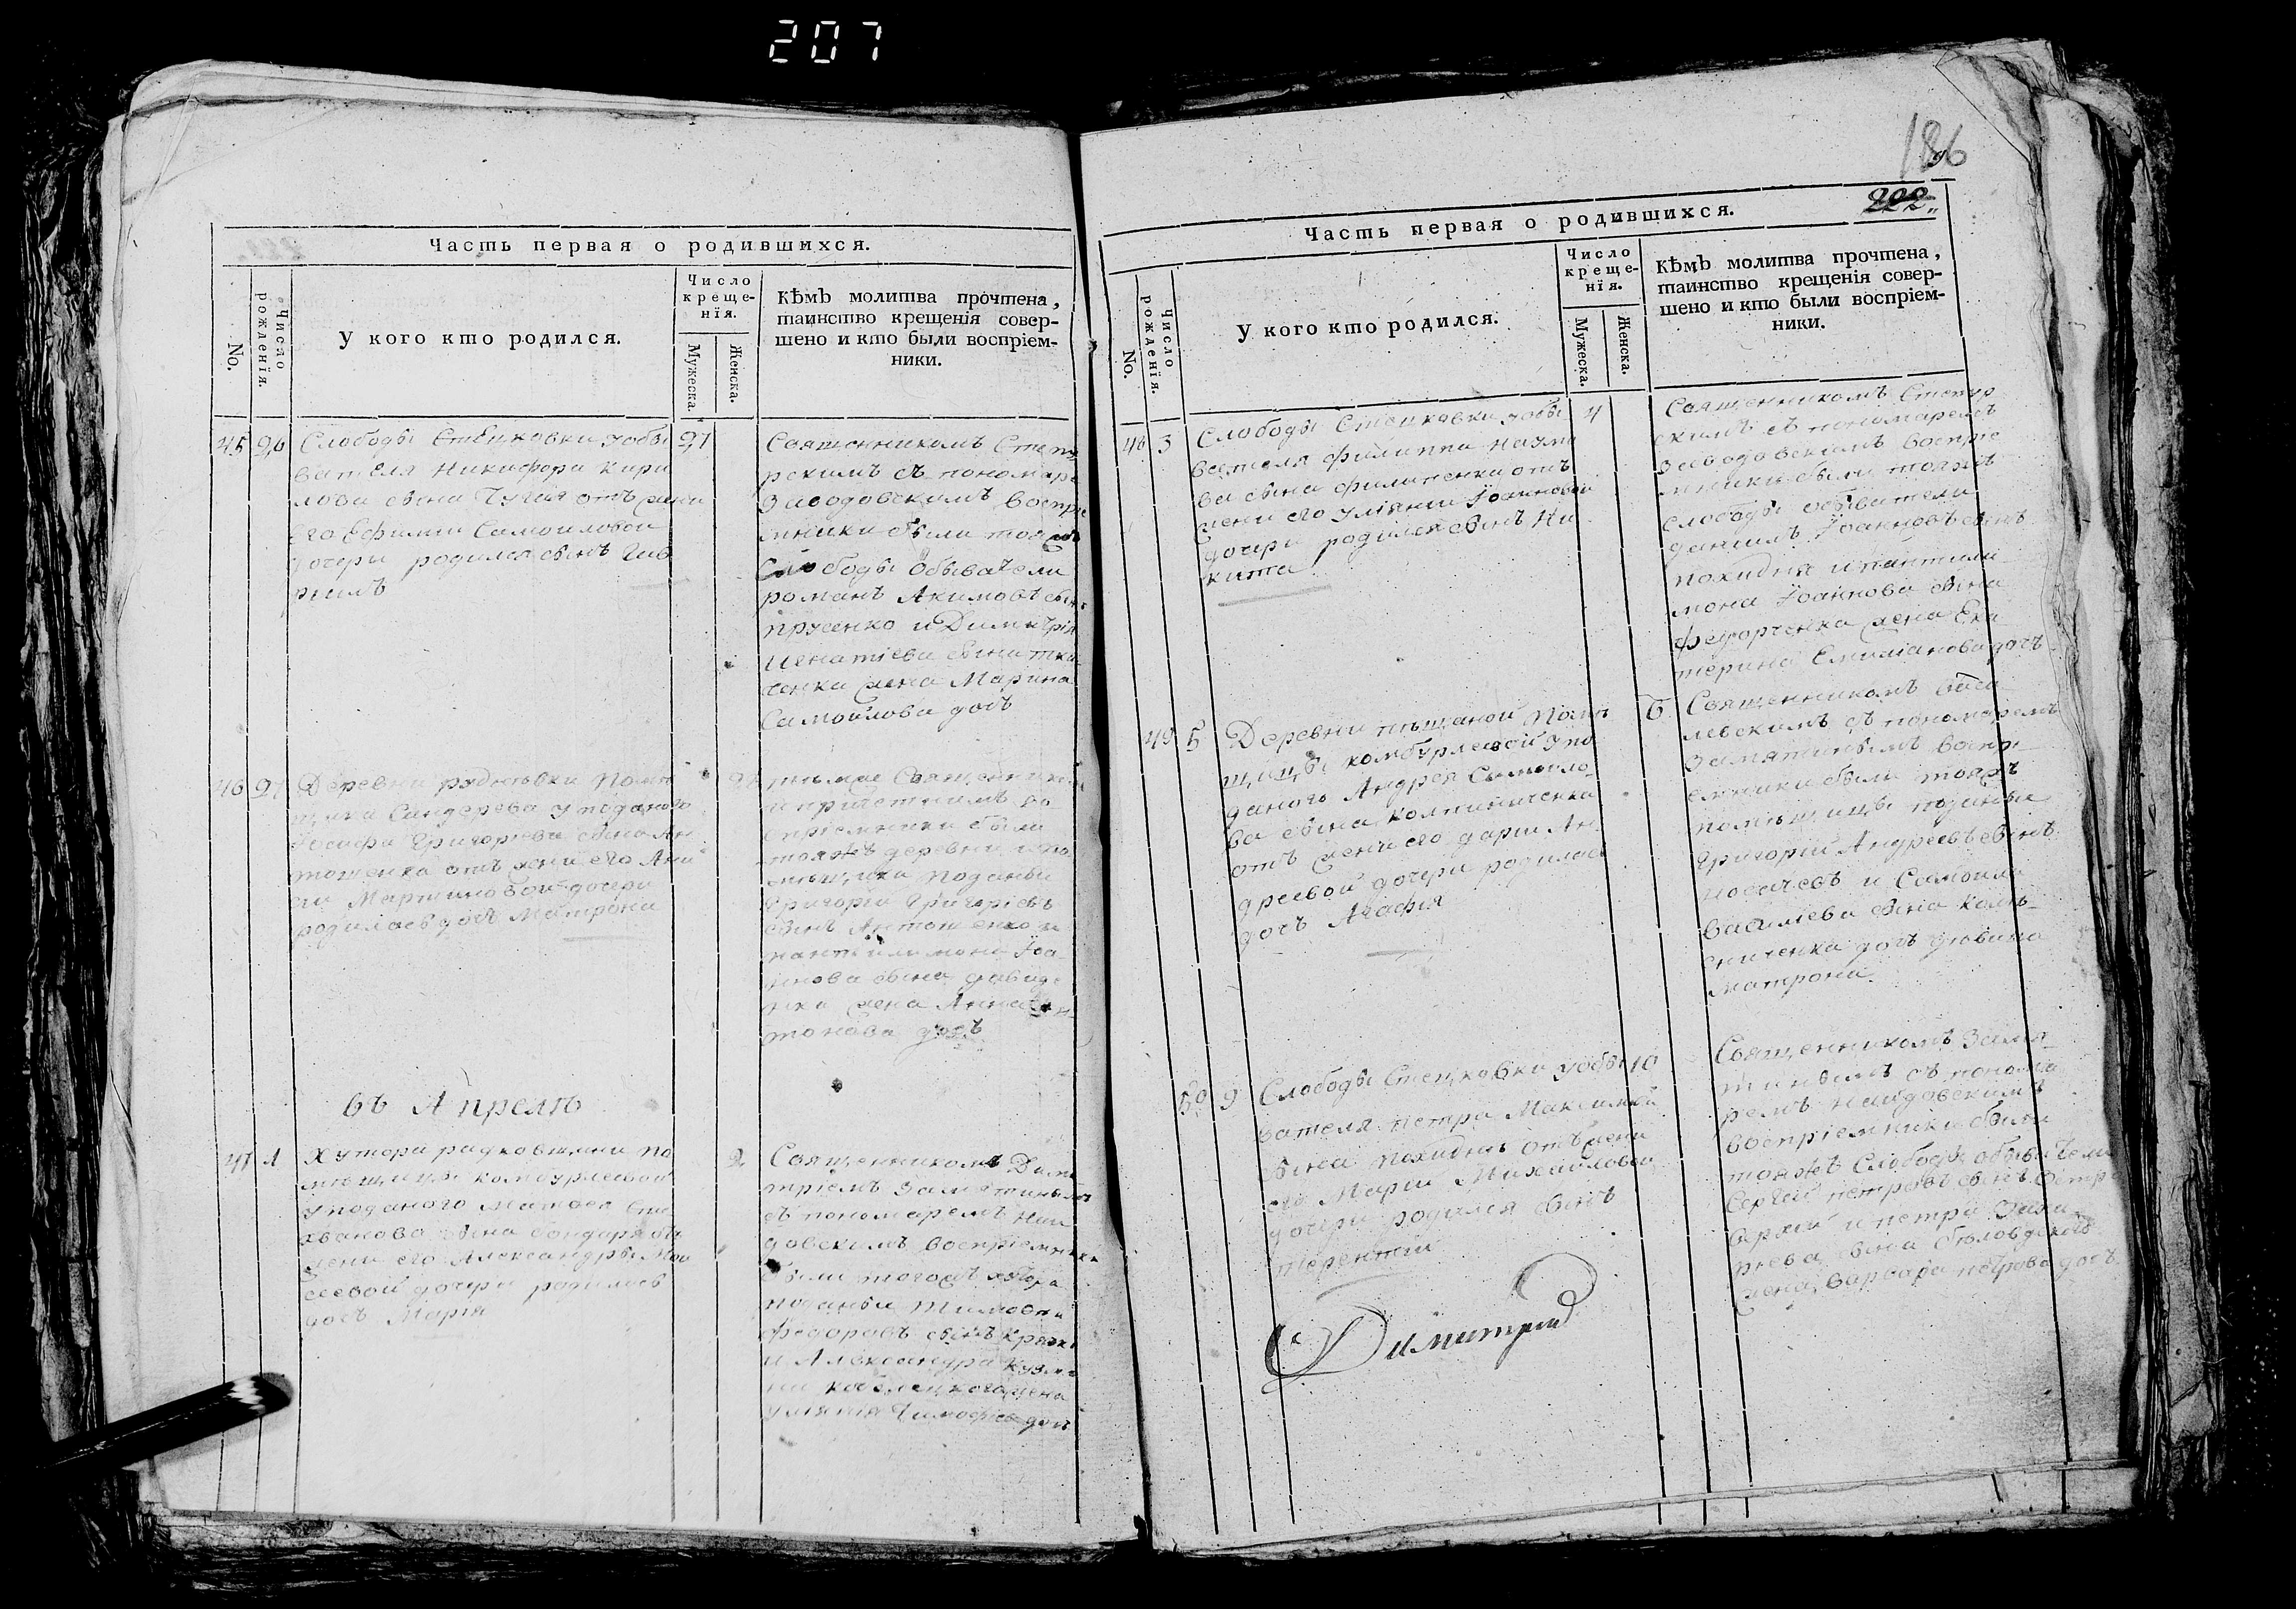 207
Часть первая о родившихся.
No.
Число рожденїя.
У кого кто родился.
Число
креще-
нїя.
Мужеска.
Женска.
Кѣмъ молитва прочтена,
таинство крещенія совер-
шено и кто были воспріем-
ники.
45 26 Слободы Стецковки уобы 27
вателя Никифора Кири
лова сына Чугая отъ жени
его Ефимии Самоиловой
дочери родился сынъ Гав
рыилъ
Священникомъ
съ пономаре
Заводовскимъ воспри
мники были тояжъ
Слободы обыватели
романъ Акимовъ сынъ
прусенко и Димитрія
Игнатіева сына тка
ченка жена Марина
Самойлова дочъ
46 27 Деревни рудневки помѣ
щика Сандерева уподаного
Іосифа Григориева сына Ан
тошенка отъ жени его Ана
Мартиновой дочери
родилась дочъ Матрона
тѣмже Священником
и причетникомъ во
спріемники были
тояжъ деревни ипо
мѣщика поданые
Григорій Григоріевъ
сынъ Антошенко и
пантилимона Іоа
ннова сына давиде
нка жена Анна Ан
тонова дочъ
въ Апрелѣ
47 1 Хутора радковщини по 2
мѣщици комбурлеевой
уподаного Матвея Сте
хванова сына бондаря отъ
жени его Александры Мои
сеевой дочери родилась
дочъ Марія
Священникомъ Дими
тріемъ Замятинымъ
съ пономаремъ Наи
довскимъ воспріемники
были тогожъ хутора
поданые Тимофей
Федоровъ сынъ
и Александра Кузми
на жена
Уліянія Тимофеева дочъ
186
222
Часть первая о родившихся.
No.
Число рожденїя.
У кого кто родился.
Число
креще-
нїя.
Мужеска.
Женска.
Кѣмъ молитва прочтена,
таинство крещенія совер-
шено и кто были воспріем-
ники.
3 Слободы Стецковки уобы 4
вателя филиппа Наумо
ва сына филипенка отъ
жени его Уліянии Іоанновой
дочери родился сынъ Ни
кита
Священникомъ
съ пономаремъ
Заводовскимъ воспріе
мники были тояжъ
слободы обыватели
даніилъ Іоанновъ сынъ
похидня и пантили
мона Іоаннова сына
федорченка жена Ека
терина Емиліанова дочъ
49 5 Деревни пѣщаной помѣ 6
щици комбурлеевой упо
даного Андрея Самоило
ва сына колпиниченка
отъ жени его дарии Ан
дреевой дочери родилась
дочъ Агафія
Священникомъ
съ пономаремъ
Замятинымъ воспри
емники были тояжъ
помѣщици поданые
Григорій Андреевъ сынъ
носачевъ и Самоила
Василіева сына
дочъ дѣвица
матрона
50 9 Слободы Стецковки уобы 10
вателя петра Максимова
сына похидня отъ жени
его Марии Михайловой
дочери родился сынъ
терентий
Священникомъ Замя
тинымъ съ понома
ремъ Наидовскимъ
воспріемники были
тояжъ Слободы обыватели
Сергей петровъ сынъ
и петра
сына
жена варвара петрова дочъ
Димитрий